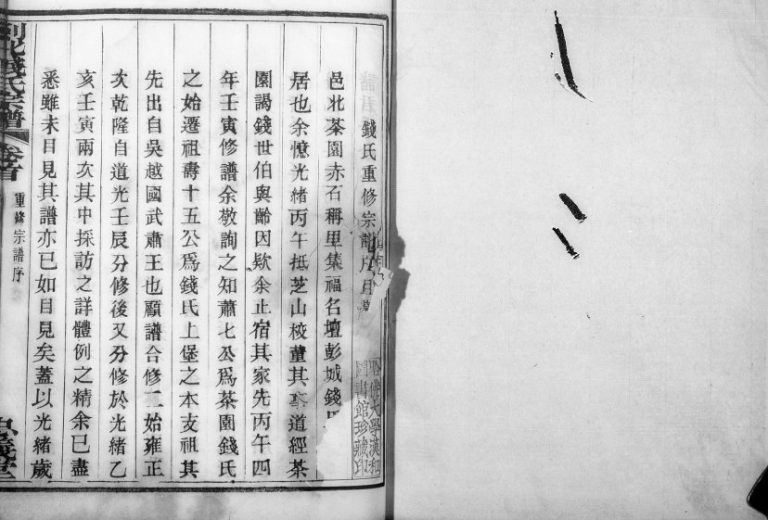 錢氏重修宗譜序
邑北茶園赤石稱里集福名壇彭城錢
居也余憶光緒丙午抵芝山校董其道經茶
園謁錢世伯與齡因欵余止宿其家先丙午四
年壬寅修譜余敬詢之知蕭七公爲茶園錢氏
之始遷祖壽十五公爲錢氏上堡之本支祖其
先出自吳越國武肅王也顧譜合修始雍正
次乾隆自道光壬辰分修後又分修於光緒乙
亥壬寅兩次其中採訪之詳體例之精余已盡
悉雖未目見其譜亦已如目見矣蓋以光緒歲
錢氏宗譜
卷首
重修宗譜序
忠義堂
大學漢和
圖書館珍藏印